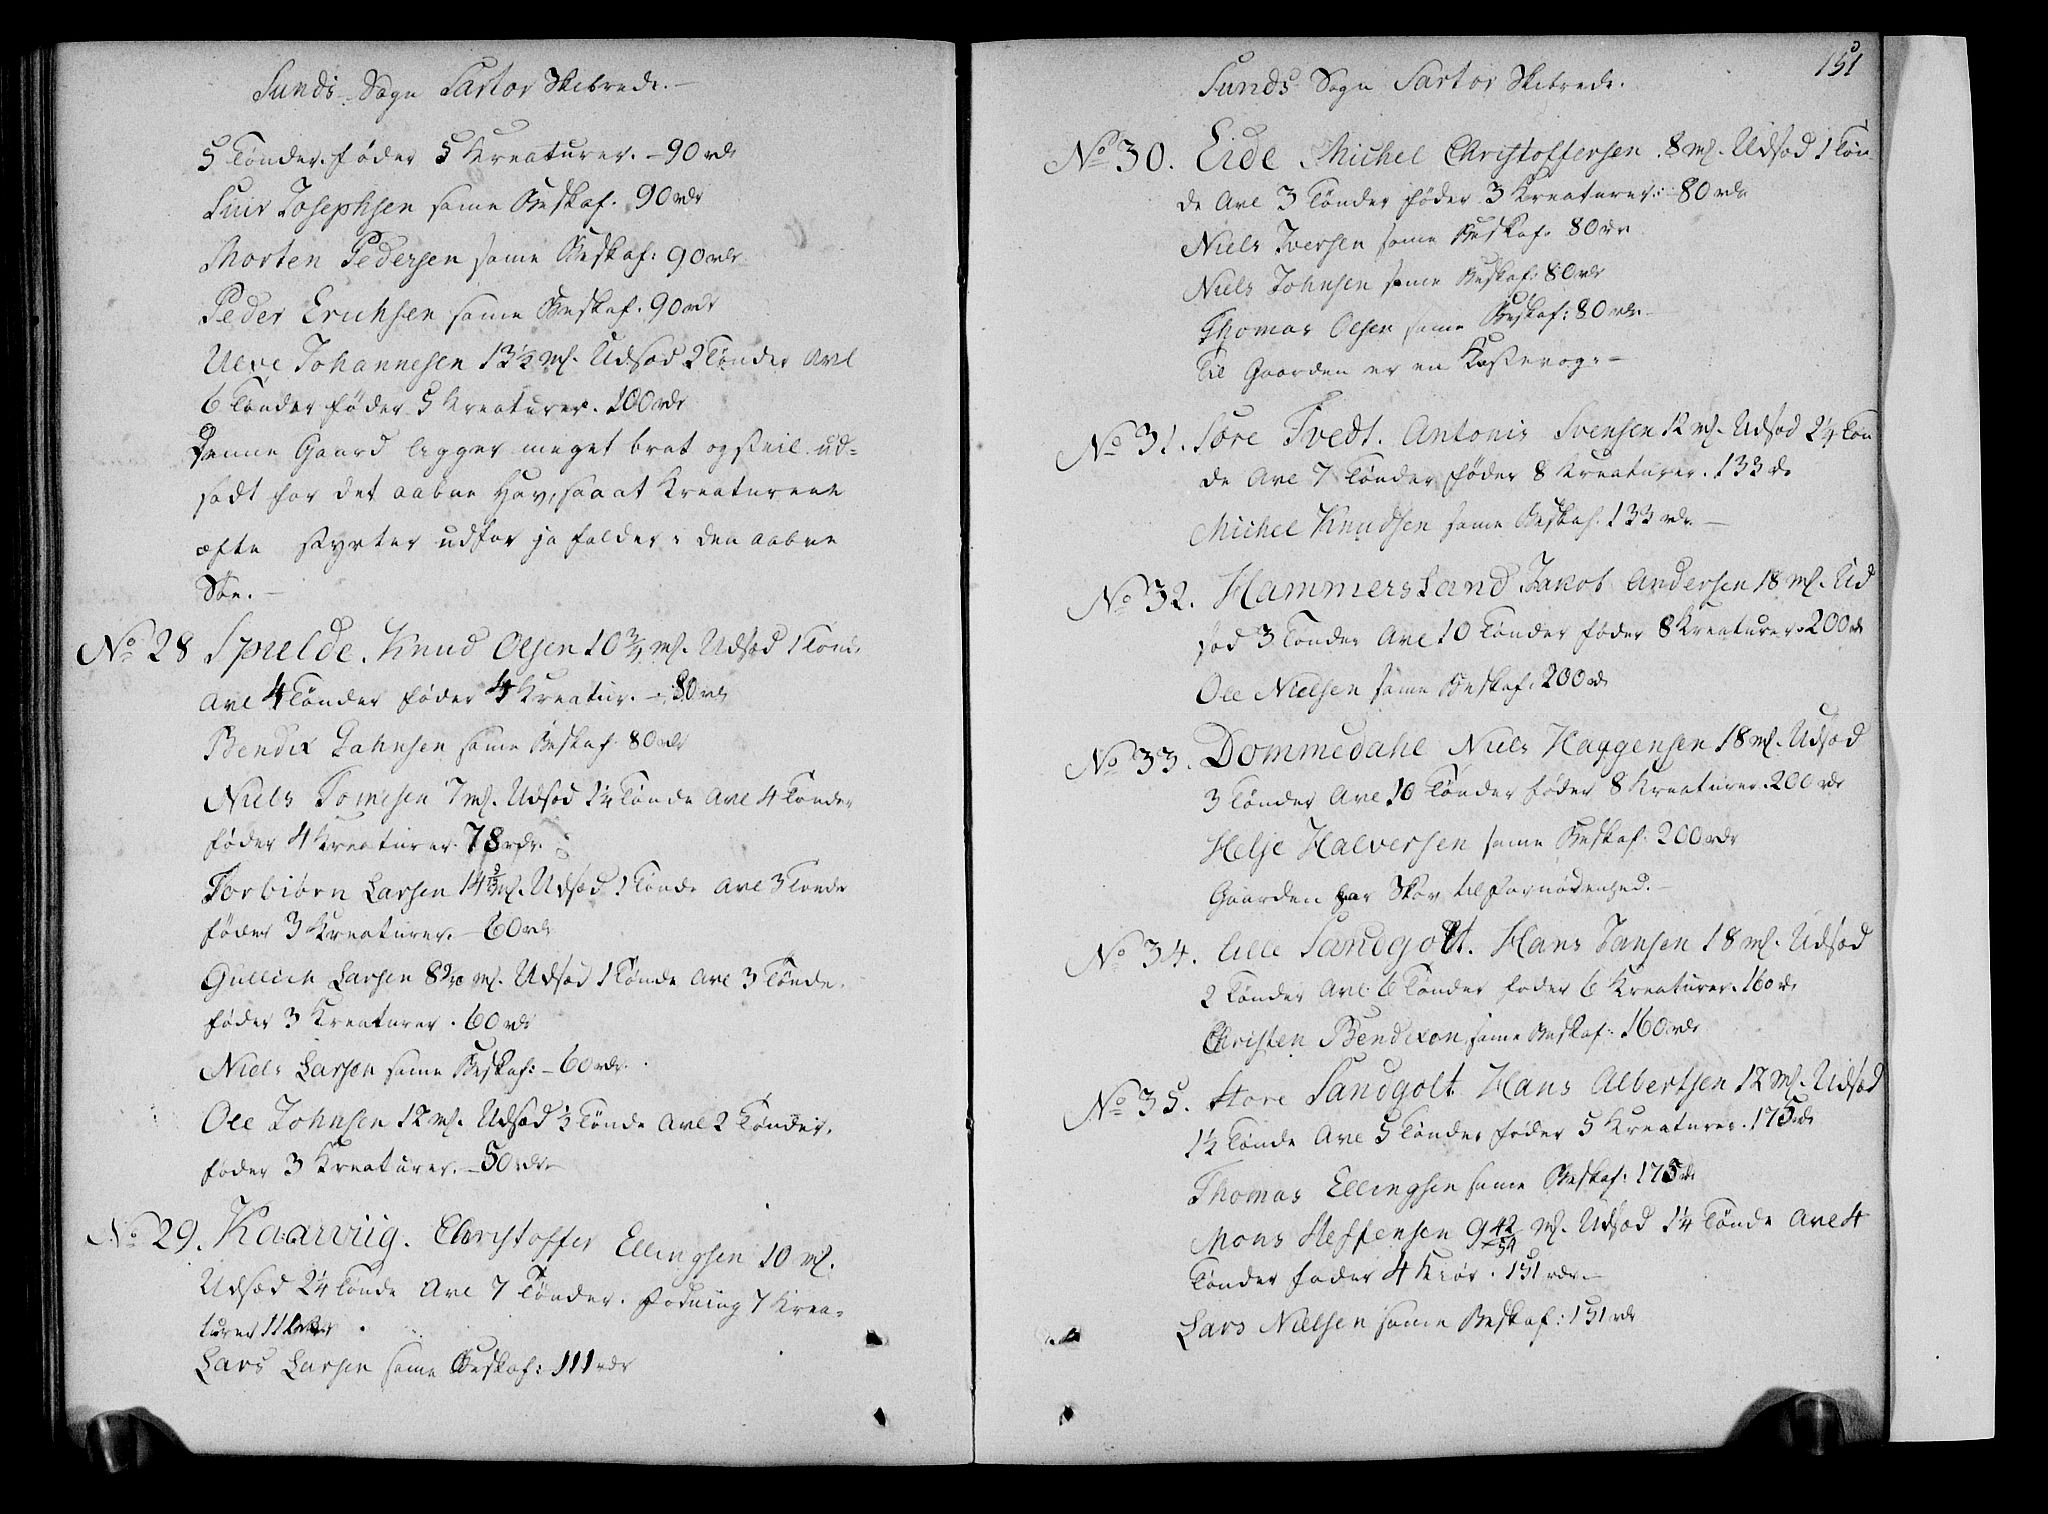 Sunds Sogn Sartor Skibrede. –
5 Tønder. føder 5 Kreaturer. – 90 rdr
Siur Josephsen same Beskaf. 90 rdr
Morten Pedersen same Beskaf: 90 rdr
Peder Erichsen same Beskaf. 90 rdr
Ulve Johannesen 13½ ml. Udsæd 2 Tønder Avl
6 Tønder føder 5 Kreaturer. 100 rdr
Denne Gaard ligger meget brat og steil ud-
sadt for det aabne Hav, saa at Kreaturene
ofte styrter udfor ja falder i den aabne
Søe. –
No 28 Spielde. Knud Olsen 10¾ ml. Udsæd 1 Tønd.
Avl 4 Tønder føder 4 Kreatur. – 80 rdr
Bendix Johnsen same Beskaf. 80 rdr
Niels Tomesen 7 ml. Udsæd 1¼ Tønde Avl 4 Tønder
føder 4 Kreaturer. 78 rdr.
Torbiørn Larsen 14 ml. Udsæd 1 Tønde Avl 3 Tønde
føder 3 Kreaturer. – 60 rdr
Gullich Larsen 8 ml. Udsæd 1 Tønde Avl 3 Tønde.
føder 3 Kreaturer. 60 rdr
Niels Larsen same Beskaf: – 60 rdr.
Ole Johnsen 12 ml. Udsæd ½ Tønde Avl 2 Tønder.
føder 3 Kreaturer. – 50 rdr. –
No 29. Kaarviig. Christoffer Ellingsen 10 ml.
Udsæd 2¼ Tønde Avl 7 Tønder. fødning 7 Krea-
turer 111 rdr
Lars Larsen same Beskaf: 111 rdr
151
Sunds Sogn Sartor Skibrede.
No 30. Eide Michel Christoffersen. 8 ml. Udsæd 1 Tøn
de Avl 3 Tønder føder 3 Kreaturer: 80 rdr
Niels Iversen same Beskaf: 80 rdr
Niels Johnsen same Beskaf: 80 rdr
Thomas Olsen same Beskaf: 80 rdr. –
Til Gaarden er en Kastevog. –
No 31. Sore Tvedt. Antonis Svensen 12 ml. Udsæd 2¼ Tøn
de Avl 7 Tønder føder 8 Kreaturer. 133 rdr
Michel Knudsen same Beskaf. 133 rdr. –
No 32. Hammersland Jakob Andersen 18 ml. Ud
sæd 3 Tønder Avl 10 Tønder føder 8 Kreaturer. 200 rdr
Ole Nielsen same Beskaf. 200 rdr
No 33. Dommedahl Niels Haggensen 18 ml. Udsæd
3 Tønder Avl 10 Tønder føder 8 Kreaturer. 200 rdr
Helje Halversen same Beskaf: 200 rdr
Gaarden har Skov til fornødenhed. –
No 34. lille Sandgolt. Hans Jansen 18 ml. Udsæd
2 Tønder Avl 6 Tønder føder 6 Kreaturer. 160 rdr
Christen Bendixon same Beskaf: 160 rdr
No 35. Store Sandgolt Hans Albertsen 12 ml. Udsæd
1½ Tønde Avl 5 Tønder føder 5 Kreaturer. 175 rdr
Thomas Ellingsen same Beskaf: 175 rdr
Mons Steffensen 9 42/54 ml. Udsæd 1¼ Tønde Avl 4
Tønder føder 4 Kiør. 151 rdr. –
Lars Nielsen same Beskaf: 151 rdr